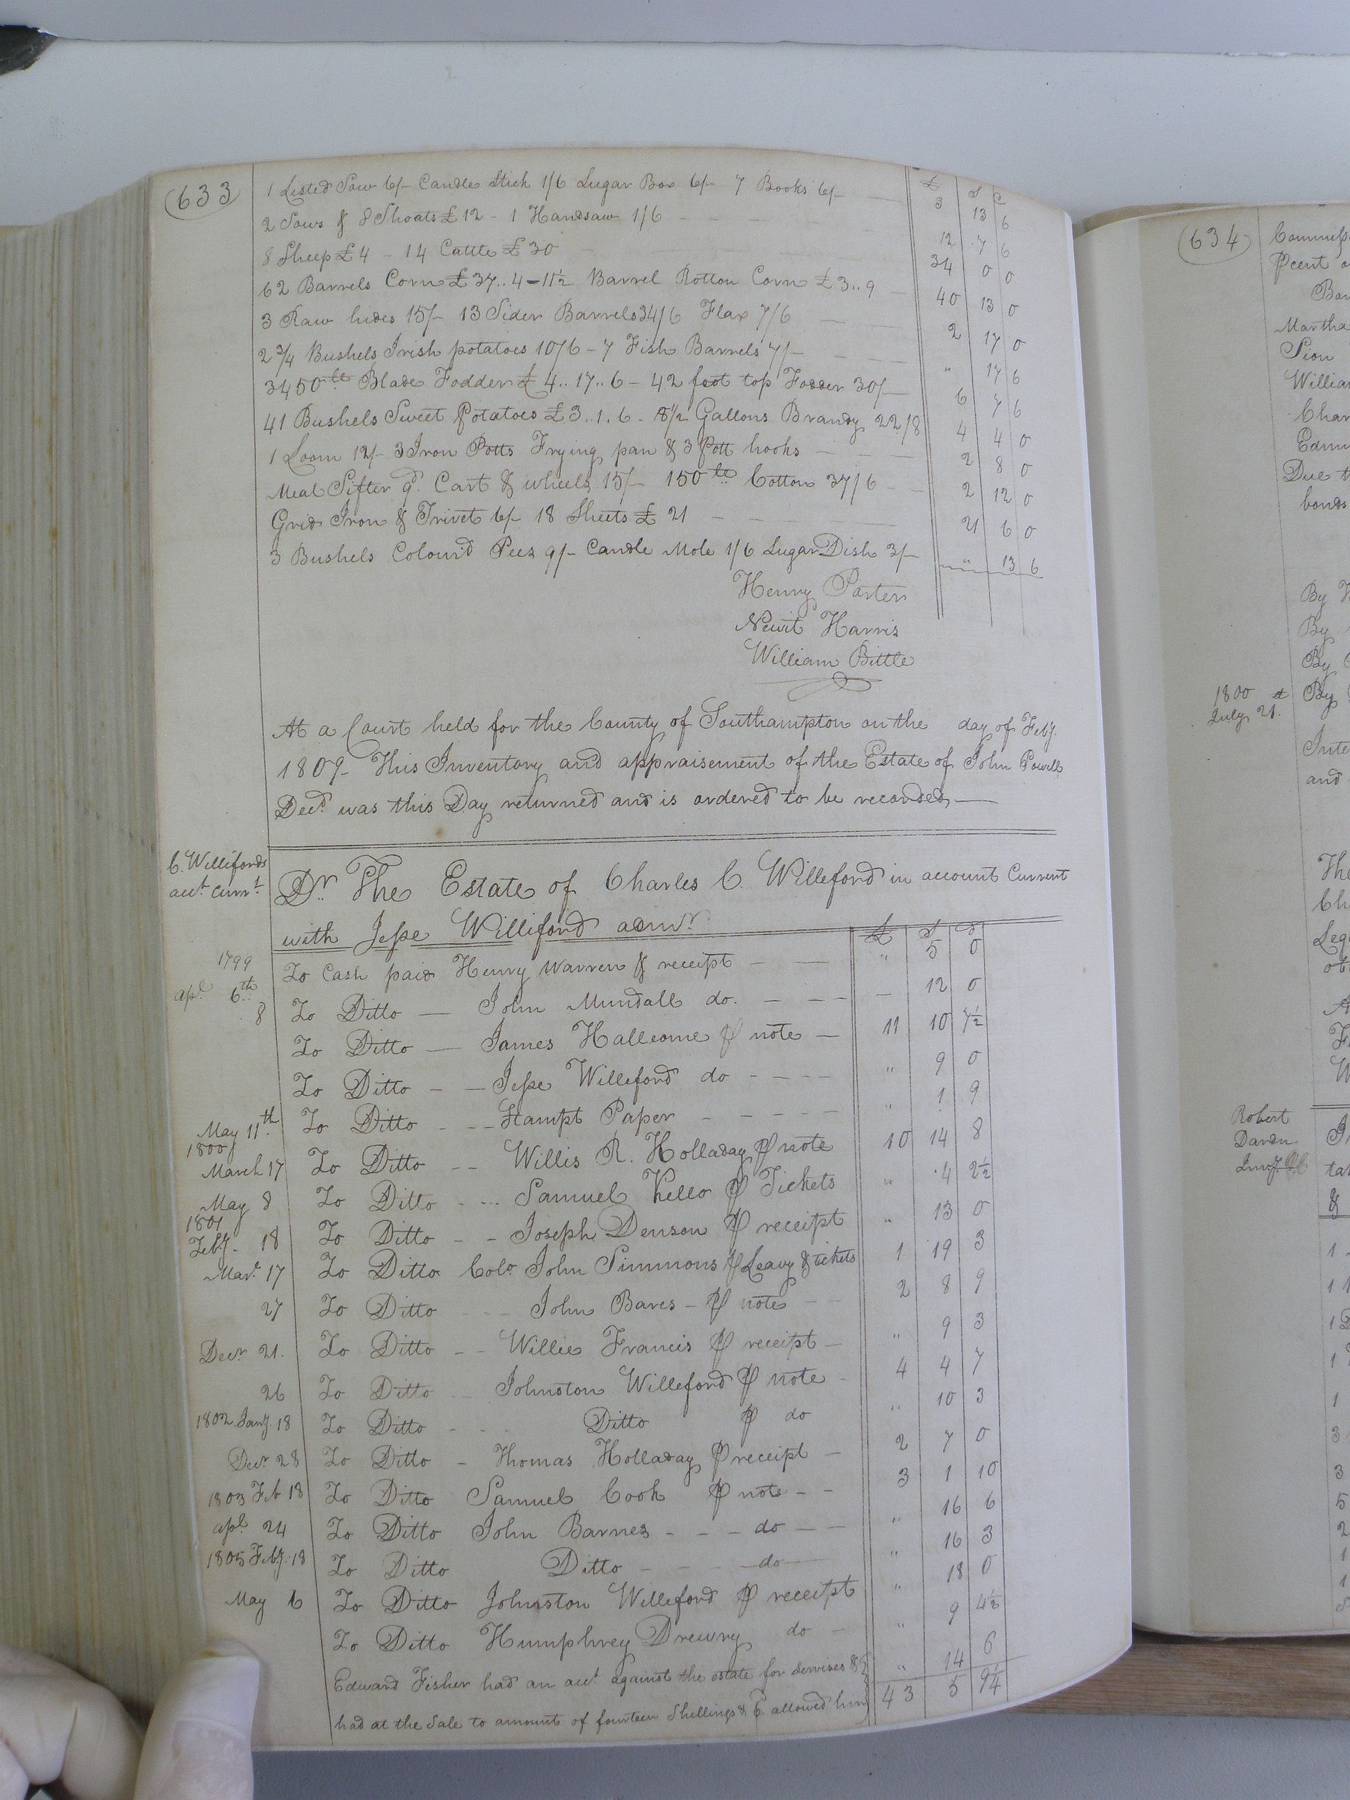 633
£ s d
1 Listed Sow 6/- Candle Stick 1/6 Sugar Box 6/- 7 Books 6/- 3 13 6
2 Sows & 8 Shoats £12 - 1 Handsaw 1/6 12 7 6
8 Sheep £4 - 14 Cattle £30 34 0 0
62 Barrels Corn £37..4 - 11½ Barrel Rotton Corn £3..9 40 13 0
3 Raw hides 15/- 13 Sider Barrels 34/6 Flax 7/6 2 17 0
2 3/4 Bushels Irish potatoes 10/6 - 7 Fish Barrels 7/- " 17 6
3450 lb Blade Fodder £4..17..6 - 42 foot top Fodder 30/- 6 7 6
41 Bushels Sweet Potatoes £3..1..6 - 8½ Gallons Brandy 22/8 4 4 0
1 Loom 12/- 3 Iron Potts Frying pan & 3 Pott hooks 2 8 0
Meal Sifter 9d. Cart & wheels 15/- 150 lb Cotton 37/6 2 12 0
Grid Iron & Trivet 6/- 18 Sheets £21 21 6 0
3 Bushels Colourd Pees 9/- Candle Mole 1/6 Sugar Dish 3/- " 13 6
Henry Porter
Newit Harris
William Bittle
At a Court held for the County of Southampton on the day of Feby.
1809 - This Inventory and appraisement of the Estate of John Powell
Decd. was this Day returned and is ordered to be recorded
C. Willifords
acct. Currt.
Dr. The Estate of Charles C. Williford in account Current
with Jesse Williford admr.
£ s d
1799
apl. 6th To Cash paid Henry Warren & receipt " 5 0
8 To Ditto John Mundall do. 12 0
To Ditto James Hallcome ⅌ note 11 10 7½
To Ditto Jesse Williford do " 9 0
May 11th. To Ditto Stampt Paper " 1 9
1800
March 17 To Ditto Willis R. Holladay ⅌ note 10 14 8
May 8 To Ditto Samuel Kello ⅌ Tickets " 4 2½
1801
Feby. 18 To Ditto Joseph Denson ⅌ receipt " 13 0
Mar. 17 To Ditto Colo. John Simmons ⅌ Leavy & tickets 1 19 3
27 To Ditto John Bares ⅌ note 2 8 9
Decr. 21. To Ditto Willie Francis ⅌ receipt " 9 3
26 To Ditto Johnston Williford ⅌ note 4 4 7
1802 Jany. 18 To Ditto Ditto ⅌ do " 10 3
Decr. 28 To Ditto Thomas Holladay ⅌ receipt 2 7 0
1803 Feb 18 To Ditto Samuel Cook ⅌ note 3 1 10
apl. 24 To Ditto John Barnes do " 16 6
1805 Feby. 18 To Ditto Ditto do " 16 3
May 6 To Ditto Johnston Williford ⅌ receipt " 18 0
To Ditto Humphrey Drewry do " 9 4½
Edward Fisher had an acct. against the estate for Services &
had at the Sale to amount of fourteen Shillings & 6 allowed him " 14 6
43 5 9¼
634
Commiss
Pcent
Martha
Sion
William
Char
Edm
Due t
bonds
By
By
By
1800
July 21. By
Inte
and
The
Ch
Lega
Robert
Darden
Invy